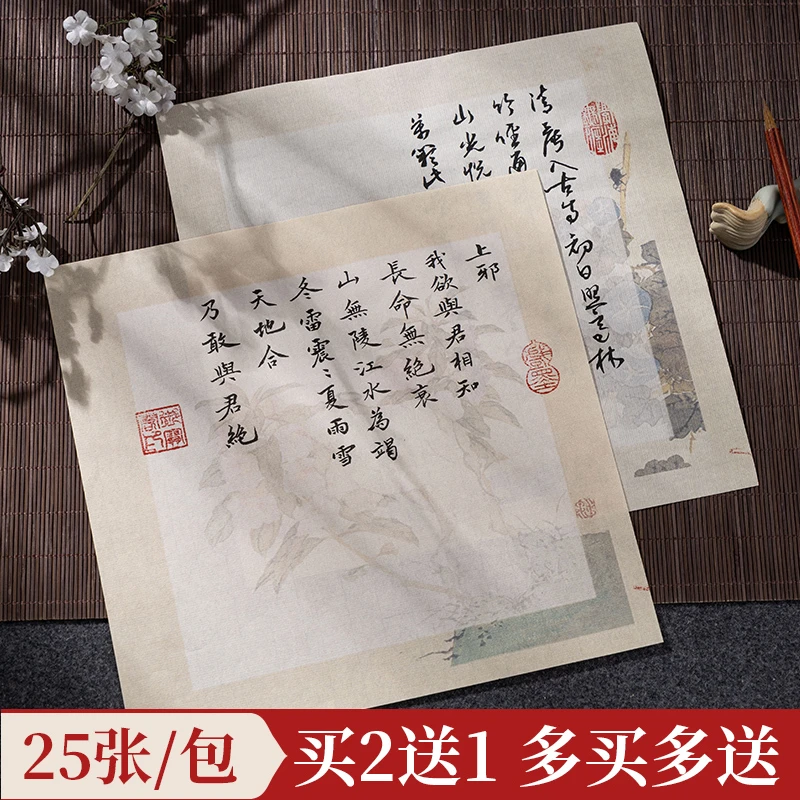 清晨入古寺初日照高林
竹徑通
山光悅
萬籟此
上邪
我欲與君相知
長命無絕衰
山無陵江水為竭
冬雷震〻夏雨雪
天地合
乃敢與君絕
25张/包
买2送1 多买多送